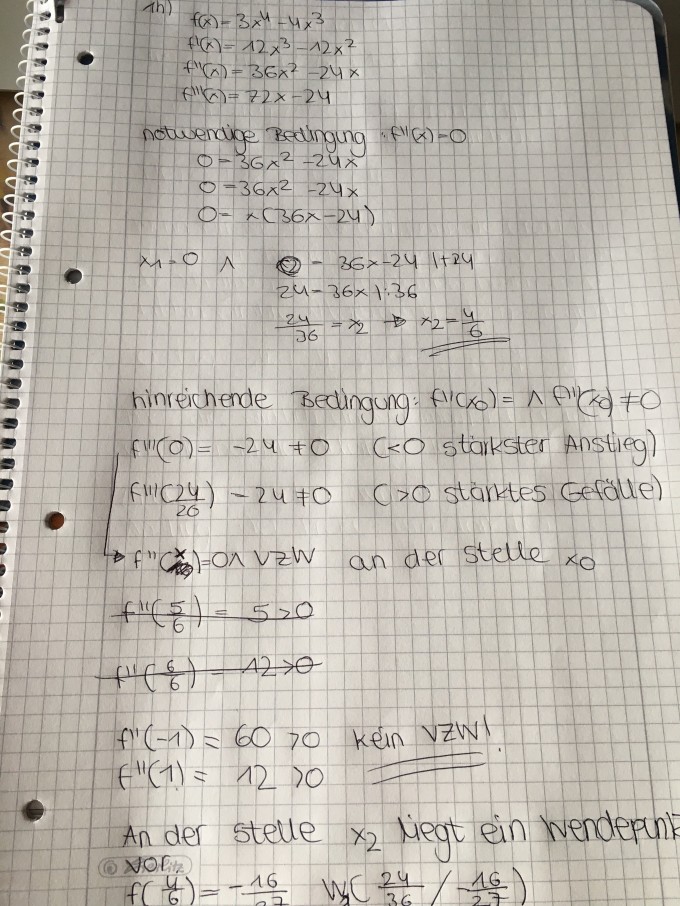 1h) f(x) = 3x⁴ - 4x³
f'(x) = 12x³ - 12x²
f''(x) = 36x² - 24x
f'''(x) = 72x - 24
notwendige Bedingung : f''(x) = 0
0 = 36x² - 24x
0 = 36x² - 24x
0 = x(36x - 24)
x1 = 0 ∧ 0 = 36x - 24 |+24
24 = 36x |:36
24/36 = x2 → x2 = 4/6
hinreichende Bedingung: f''(x0) = ∧ f'''(x0) ≠ 0
f'''(0) = -24 ≠ 0 (<0 stärkster Anstieg)
f'''(24/26) = 24 ≠ 0 (>0 stärktes Gefälle)
f''(x) = 0 ∧ VZW an der stelle x0
f''(5/6) = 5 > 0
f''(6/6) = 12 > 0
f''(-1) = 60 > 0 kein VZW!
f''(1) = 12 > 0
An der stelle x2 liegt ein Wendepunkt
vor.
f(4/6) = -16/27 W(24/36 / -16/27)